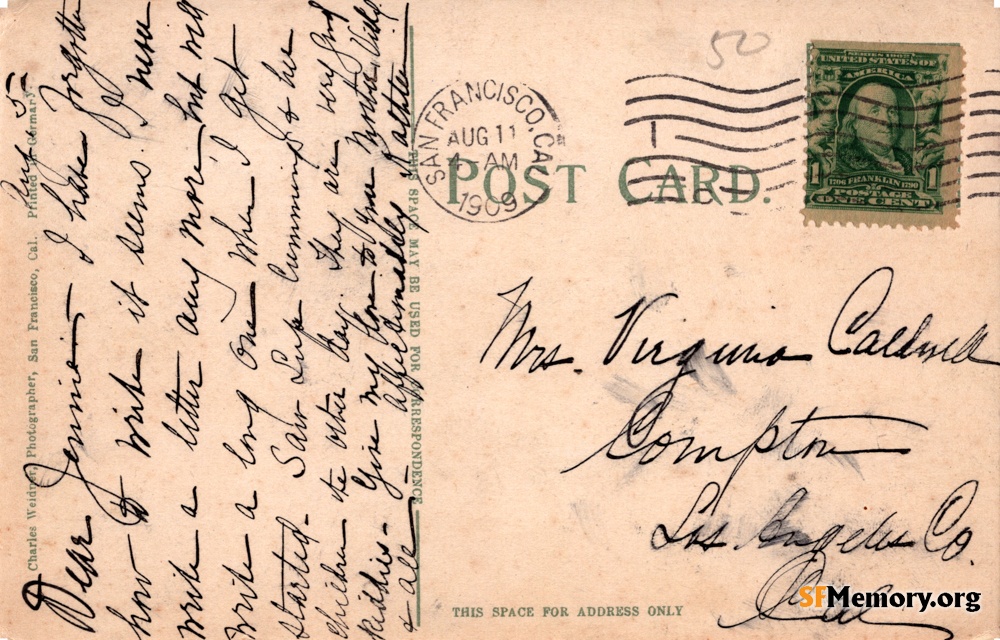 50
SAN FRANCISCO, CAL.
AUG 11
4 - AM
1909
SERIES 1902
UNITED STATES OF
AMERICA
1706 FRANKLIN 1790
POSTAGE
1 1
ONE CENT
POST CARD.
Mrs. Virginia Caldwell
Compton
Los Angeles Co.
Cal
THIS SPACE FOR ADDRESS ONLY
THIS SPACE MAY BE USED FOR CORRESPONDENCE
Charles Weidner, Photographer, San Francisco, Cal. Printed in Germany.
Dear Jennie - I have forgotten
how to write it seems. I never
write a letter any more, but will
write a long one when I get
started - Saw Cummings & her
children the other day. They are very fond
kiddies - Give my love to you
& all - affectionately
SFMemory.org